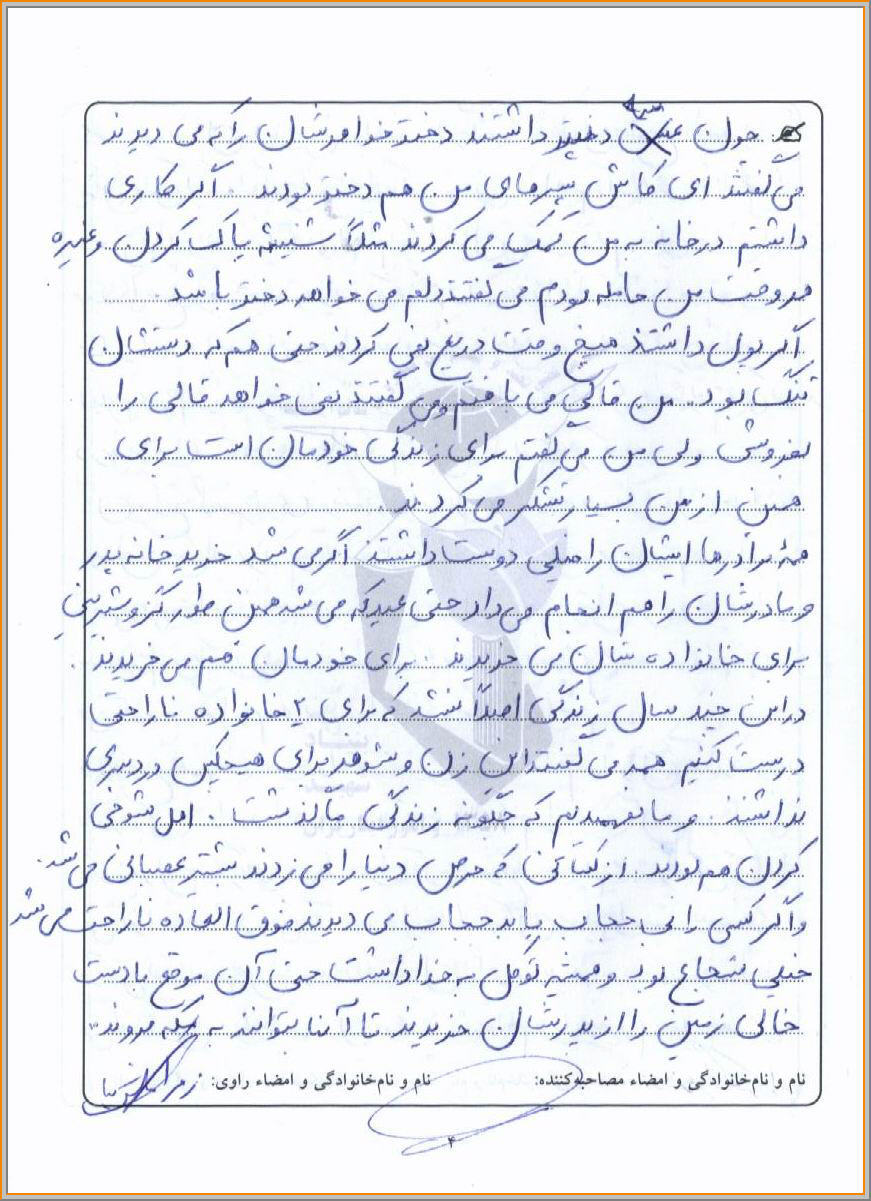 چون سه دختر داشتند دختر خواهرشان را که می دیدند
می گفتند ای کاش پسرهای من هم دختر بودند . اگر کاری
داشتم در خانه به من کمک می کردند مثلاً شیشه پاک کردن وغیره
هر وقت من حامله بودم می گفتند دلم می خواهد دختر باشد .
اگر پول داشتند هیچ وقت دریغ نمی کردند حتی هم که دستشان
تنگ بود . من قالی می بافتم ومی گفتند نمی خواهد قالی را
بفروشی ولی من می گفتم برای زندگی خودمان است برای
همین از من بسیار تشکر می کردند .
همه برادرها ایشان را خیلی دوست داشتند اگر می شد خرید خانه پدر
و مادرشان را هم انجام می داد حتی عید که می شد همین طور گز و شیرینی
برای خانواده شان می خریدند . برای خودمان هم می خریدند .
در این چند سال زندگی اصلاً نشد که برای ۲ خانواده ناراحتی
درست کنیم همه می گفتند این زن و شوهر برای هیچکس دردسری
نداشتند . و ما نفهمیدیم که چگونه زندگی ما گذشت . اهل شوخی
کردن هم بودند . از کسانی که حرص دنیا را می زدند بیشتر عصبانی می شد .
و اگر کسی را بی حجاب یا بد حجاب می دیدند فوق العاده ناراحت می شد
خیلی شجاع بود و همیشه توکل به خدا داشت حتی آن موقع با دست
خالی زمین را از پدرشان خریدند تا آنها بتوانند به مکه بروند .
نام و نام‌خانوادگی و امضاء مصاحبه‌کننده: نام و نام‌خانوادگی و امضاء راوی: زهرا
۴